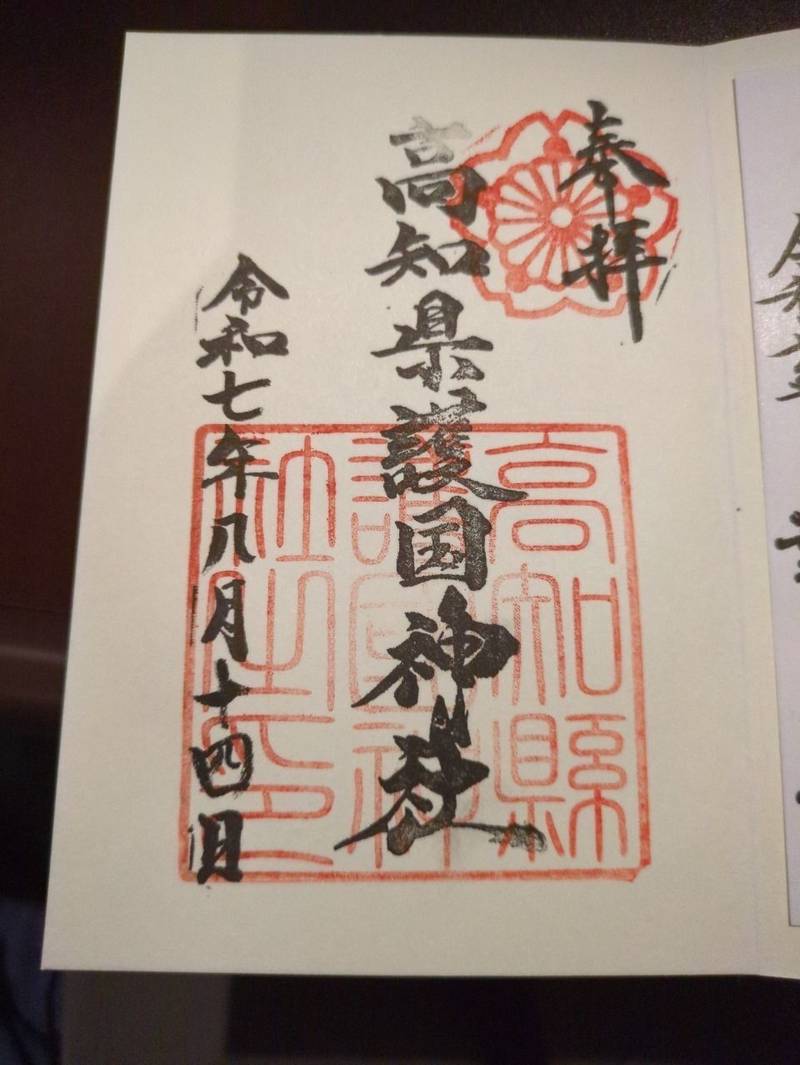 奉拝
高知県護国神社
令和七年八月十四日
高知縣
護國神
社之印